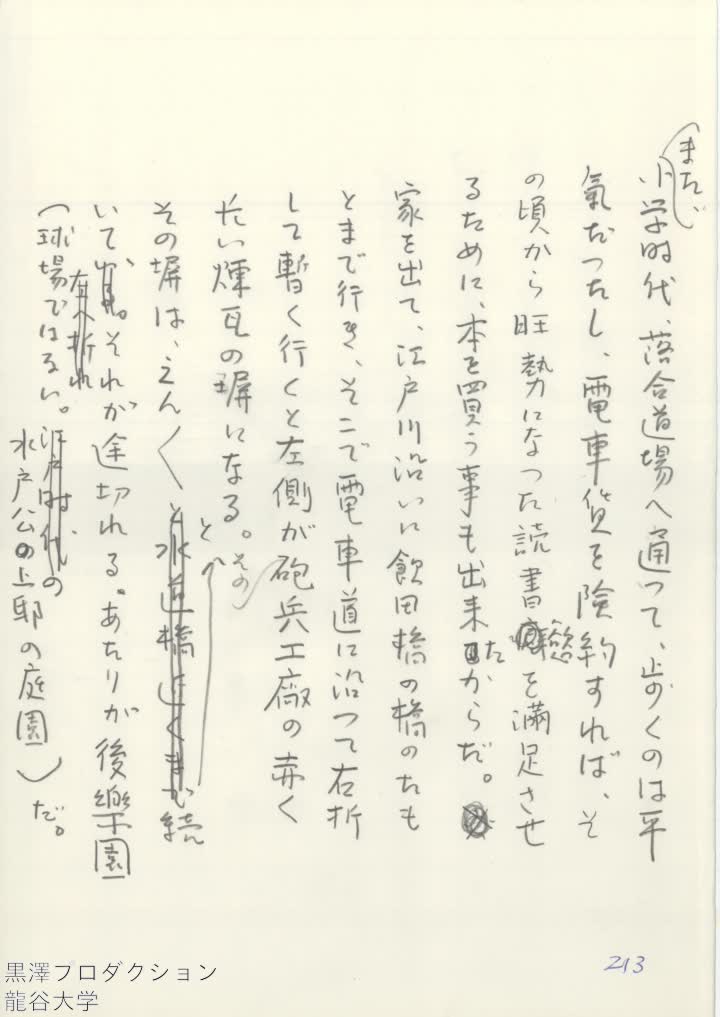 また、
小学時代、落合道場へ通つて、歩くのは平
氣だつたし、電車賃を険約すれば、そ
の頃から旺勢になった読書慾を満足させ
るために、本を買う事も出来たからだ。
家を出て、江戸川沿いに飯田橋の橋のたも
とまで行き、そこで電車道に沿つて右折
して暫く行くと左側が砲兵工廠の赤く
たい煉瓦の塀になる。その
その塀は、えん〱と水道橋近くまが続
と
いて、それが途切れる。あたりが後樂園
左へ折れ
（球場ではない。江戸時代の
水戸公の上邸の庭園）だ。
213
黒澤プロダクション
龍谷大学